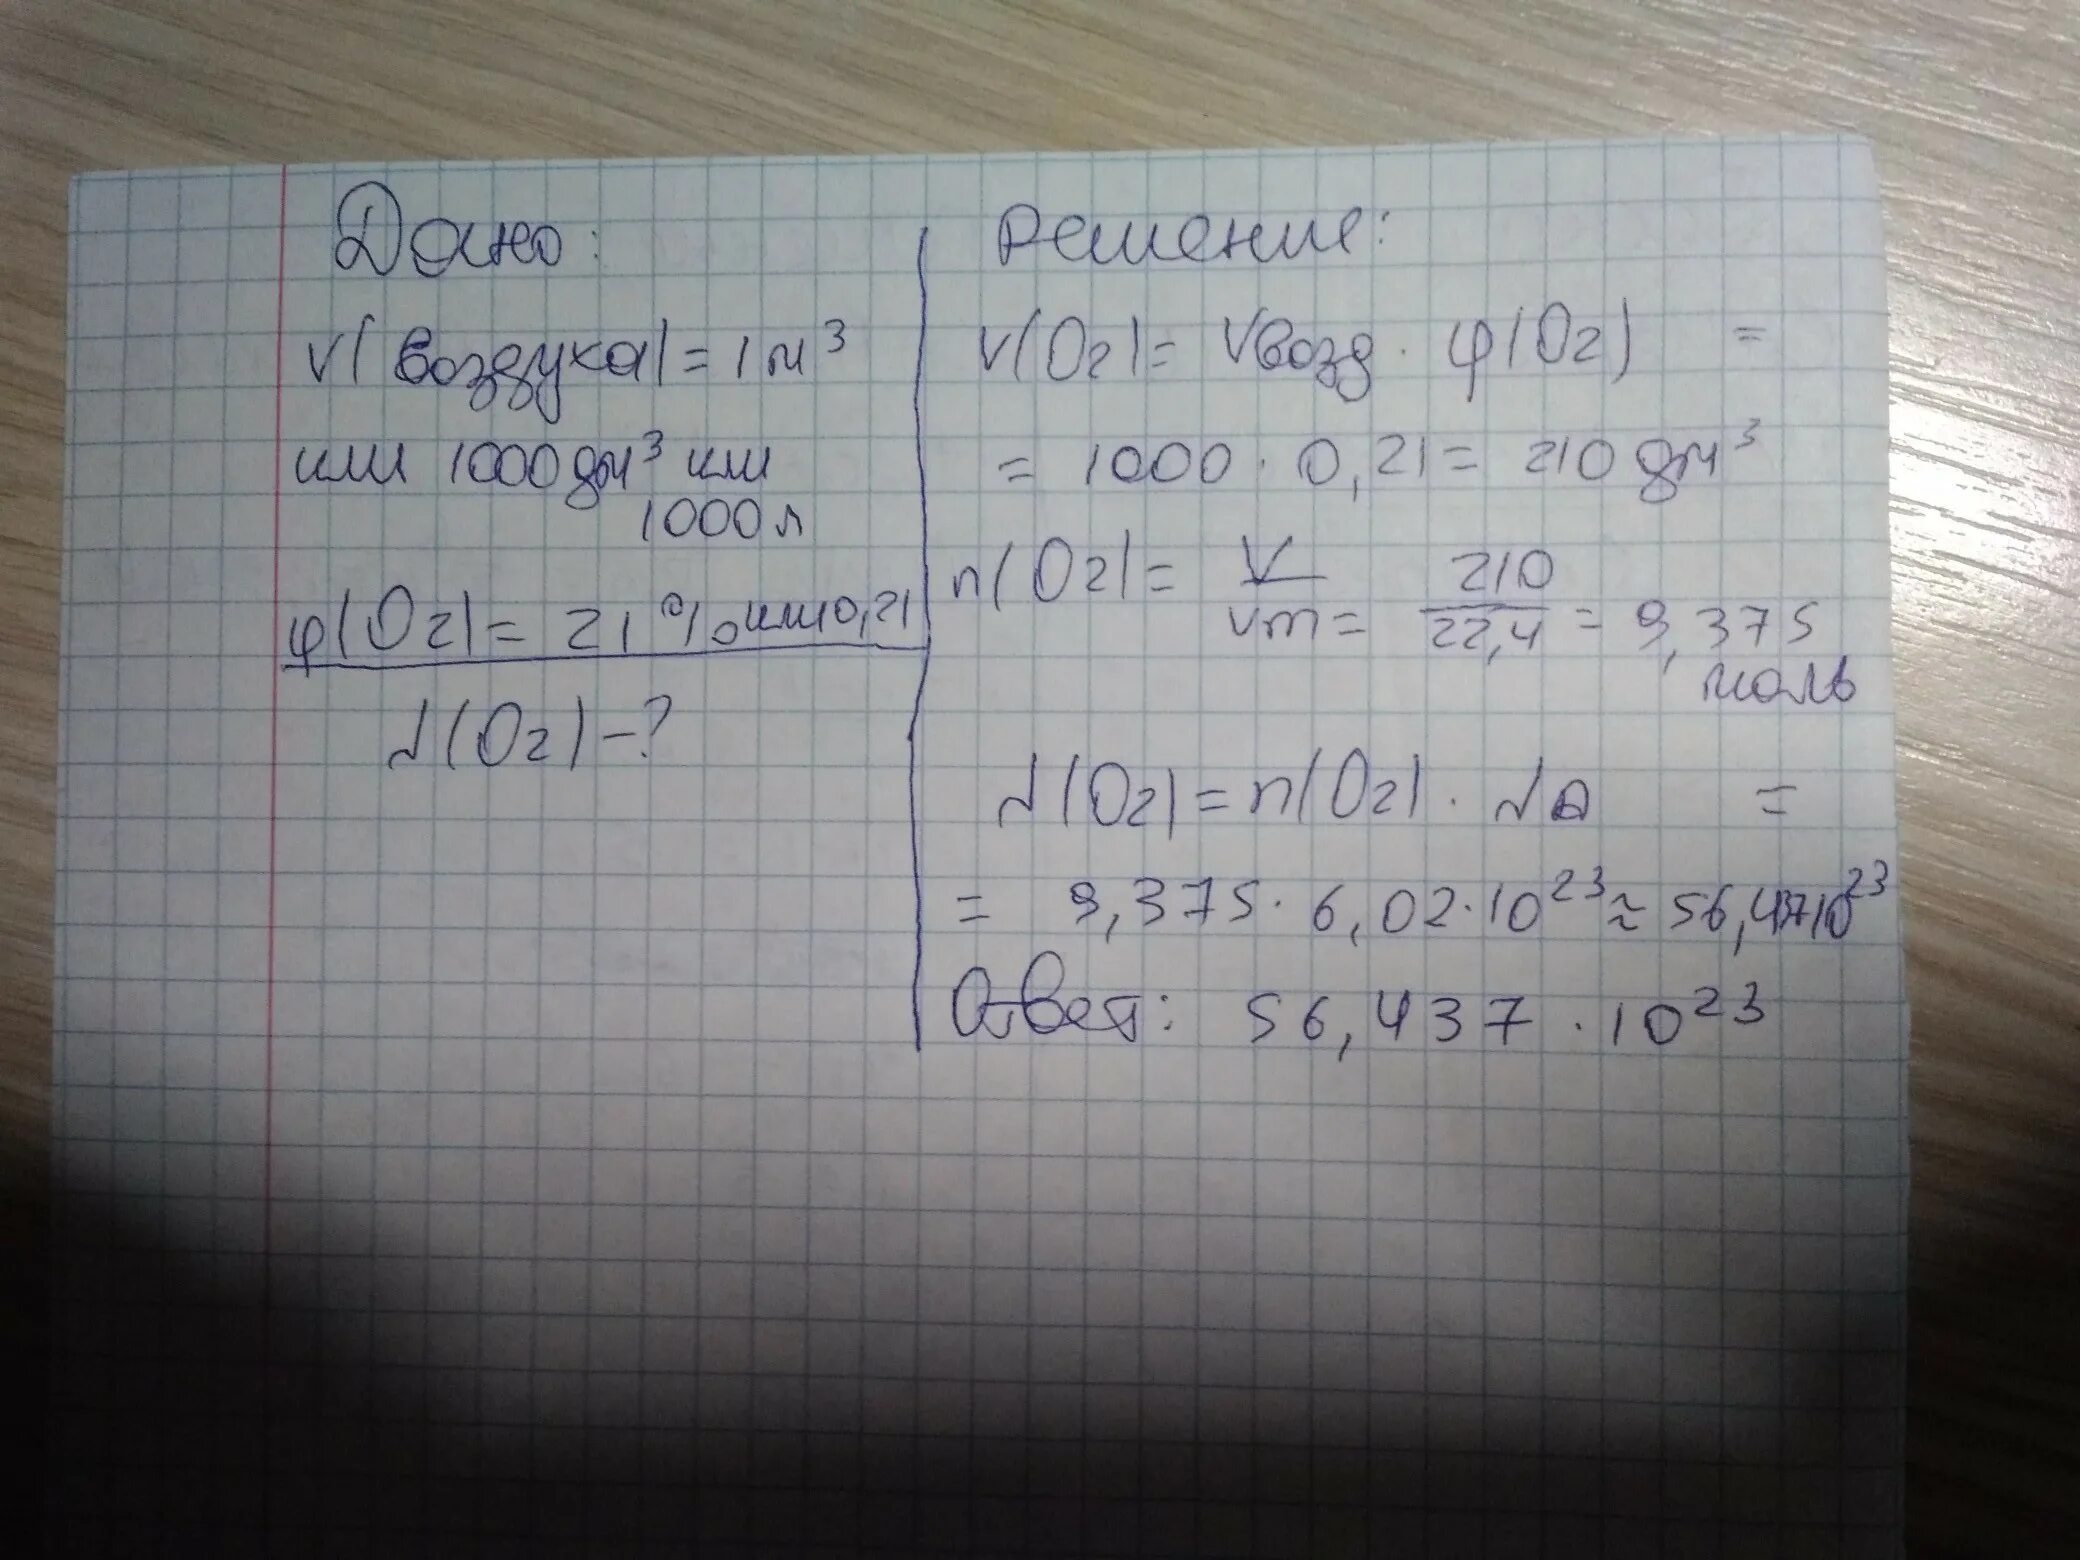 Дано:
V(воздуха)=1м³
или 1000дм³ или
1000л
φ(O₂)= 21% или 0,21
N(O₂)-?
Решение:
V(O₂)= Vвозд · φ(O₂) =
= 1000 · 0,21 = 210 дм³
n(O₂)= V/Vm = 210/22,4 = 9,375
моль
N(O₂)=n(O₂) · NA =
= 9,375 · 6,02 · 10²³ ≈ 56,4 10²³
Ответ: 56,437 · 10²³